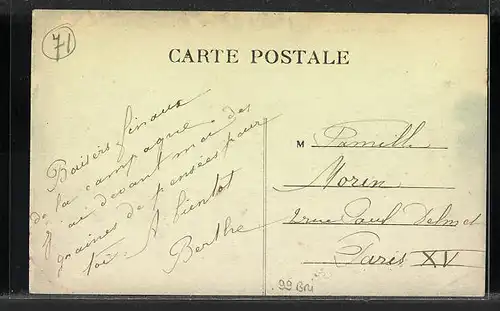 71
CARTE POSTALE
Baisers finaux
de la campagne.
J'ai devant moi des
graines de pensées pour
toi. A bientot
Berthe
M Famille
Morin
2 rue Paul Delmet
Paris XV
99 Bri